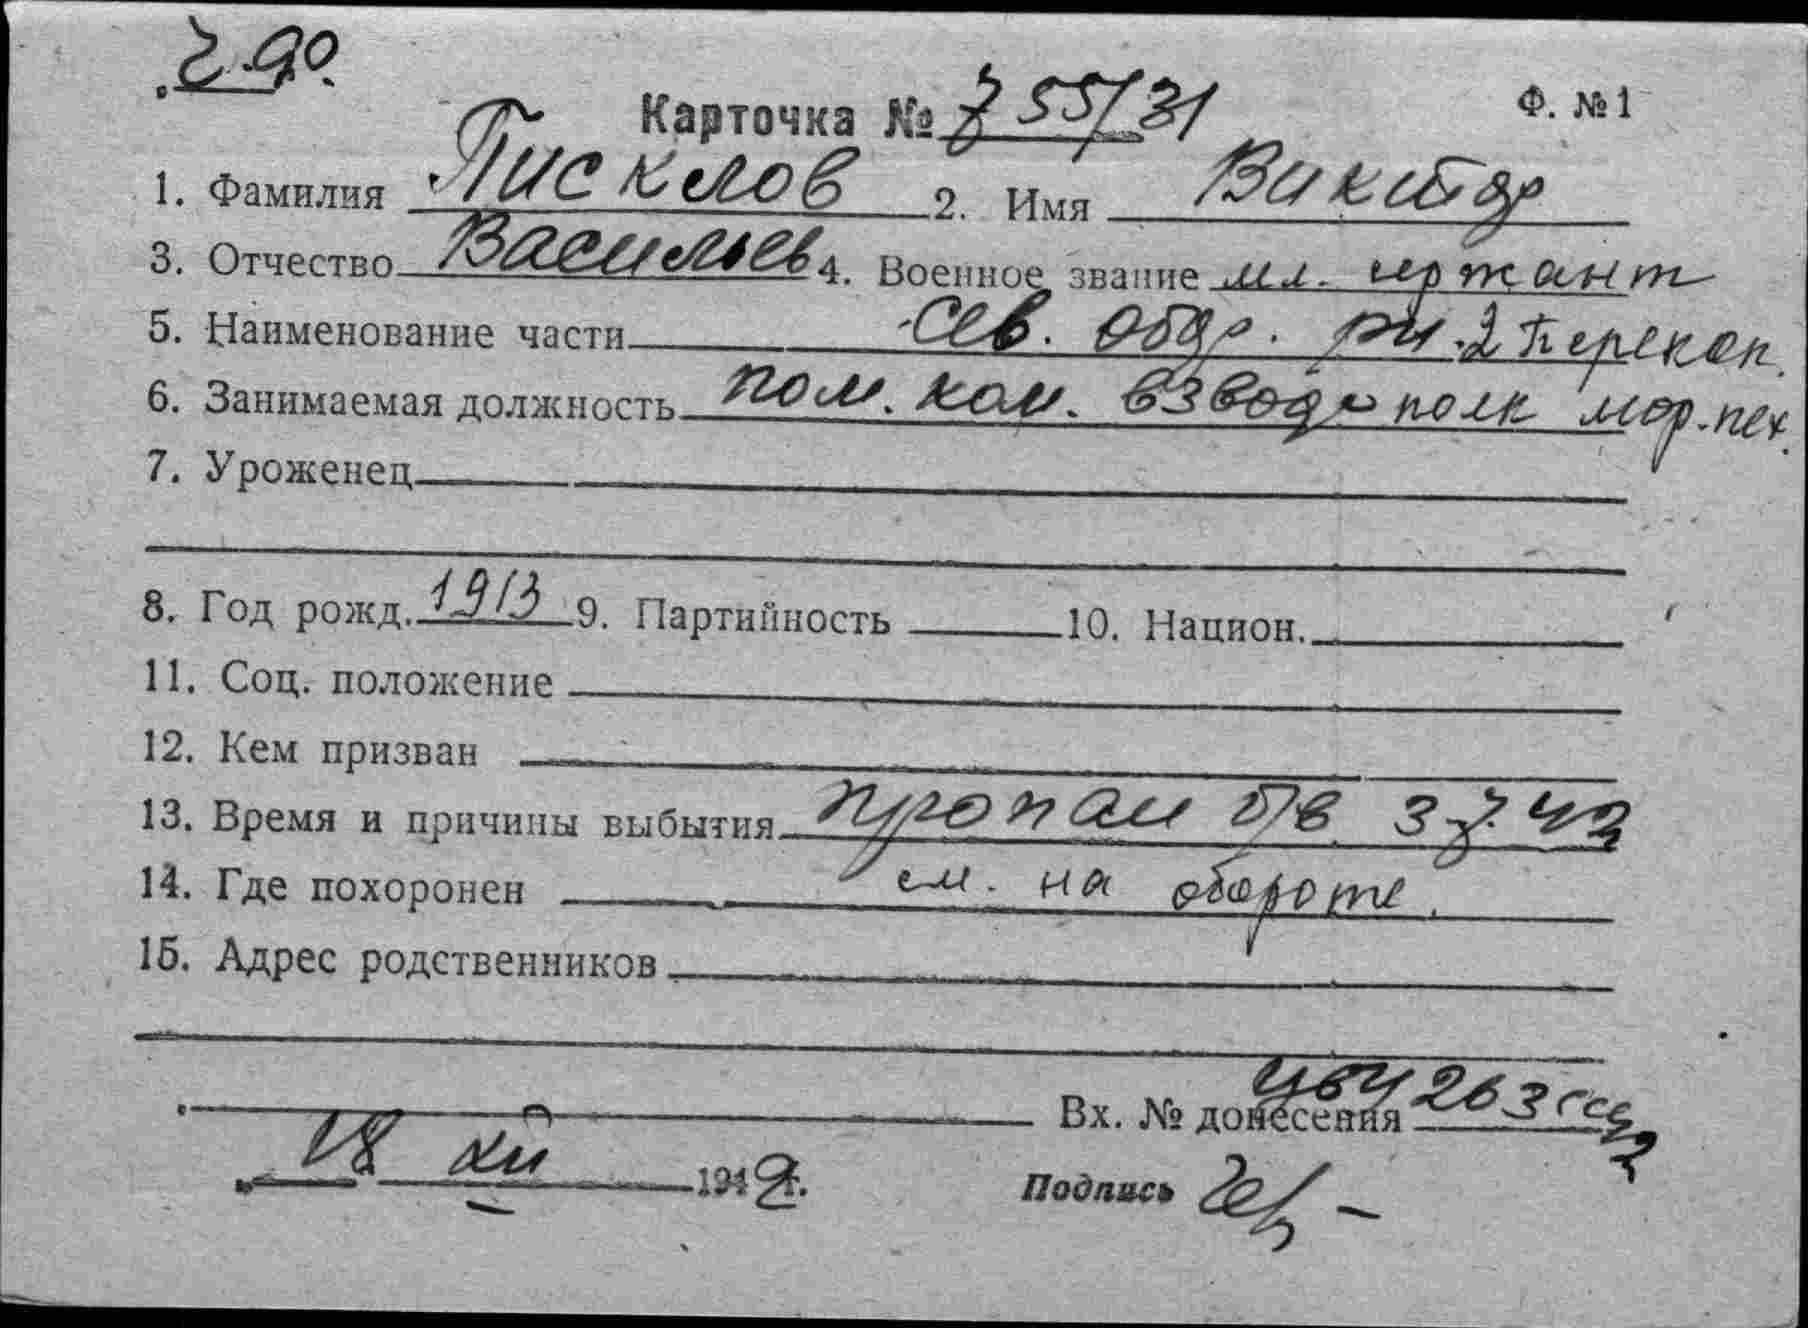 Ф. №1
Карточка № 755/31
1. Фамилия Писклов 2. Имя Виктор
3. Отчество Васильев 4. Военное звание мл. сержант
5. Наименование части Сев. обор. р-н. 2 Перекоп.
6. Занимаемая должность пом. ком. взвода полк мор. пех.
7. Уроженец
8. Год рожд. 1913 9. Партийность 10. Национ.
11. Соц. положение
12. Кем призван
13. Время и причины выбытия пропал б/в 3.7.42
14. Где похоронен см. на обороте.
15. Адрес родственников
Вх. № донесения 263
18 194 г.
Подпись